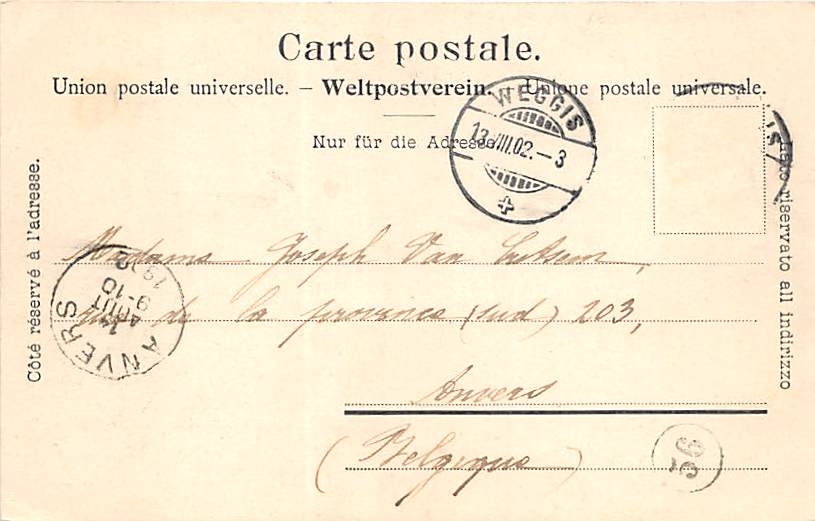 Carte postale.
Union postale universelle. – Weltpostverein. – Unione postale universale.
Nur für die Adresse.
Côté réservé à l'adresse.
Lato riservato all indirizzo
WEGGIS
13.VIII.02.–3
Madame Joseph Van Cutsem,
rue de la province (sud) 203,
Anvers
(Belgique)
ANVERS
14
AOUT
9-10
36